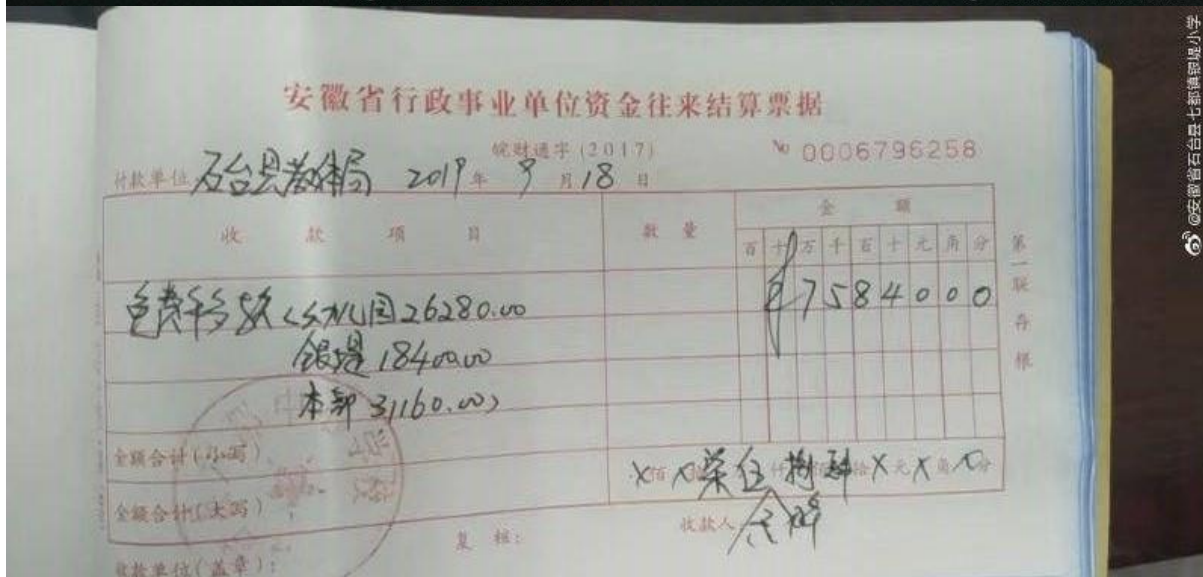 安徽省行政事业单位资金往来结算票据
皖财通字(2017)
No 0006796258
付款单位 石台县教体局 2019年 9月18日
收款项目 数量 金额
百十万千百十元角分
免费午餐款(幼儿园26280.00
¥7584000
银堤18400.00
本部31160.00)
金额合计(小写)
金额合计(大写)
X佰X柒伍仟捌肆拾X元X角X分
复核:
收款人
收款单位(盖章):
第一联存根
@安徽省石台县七都镇银堤小学